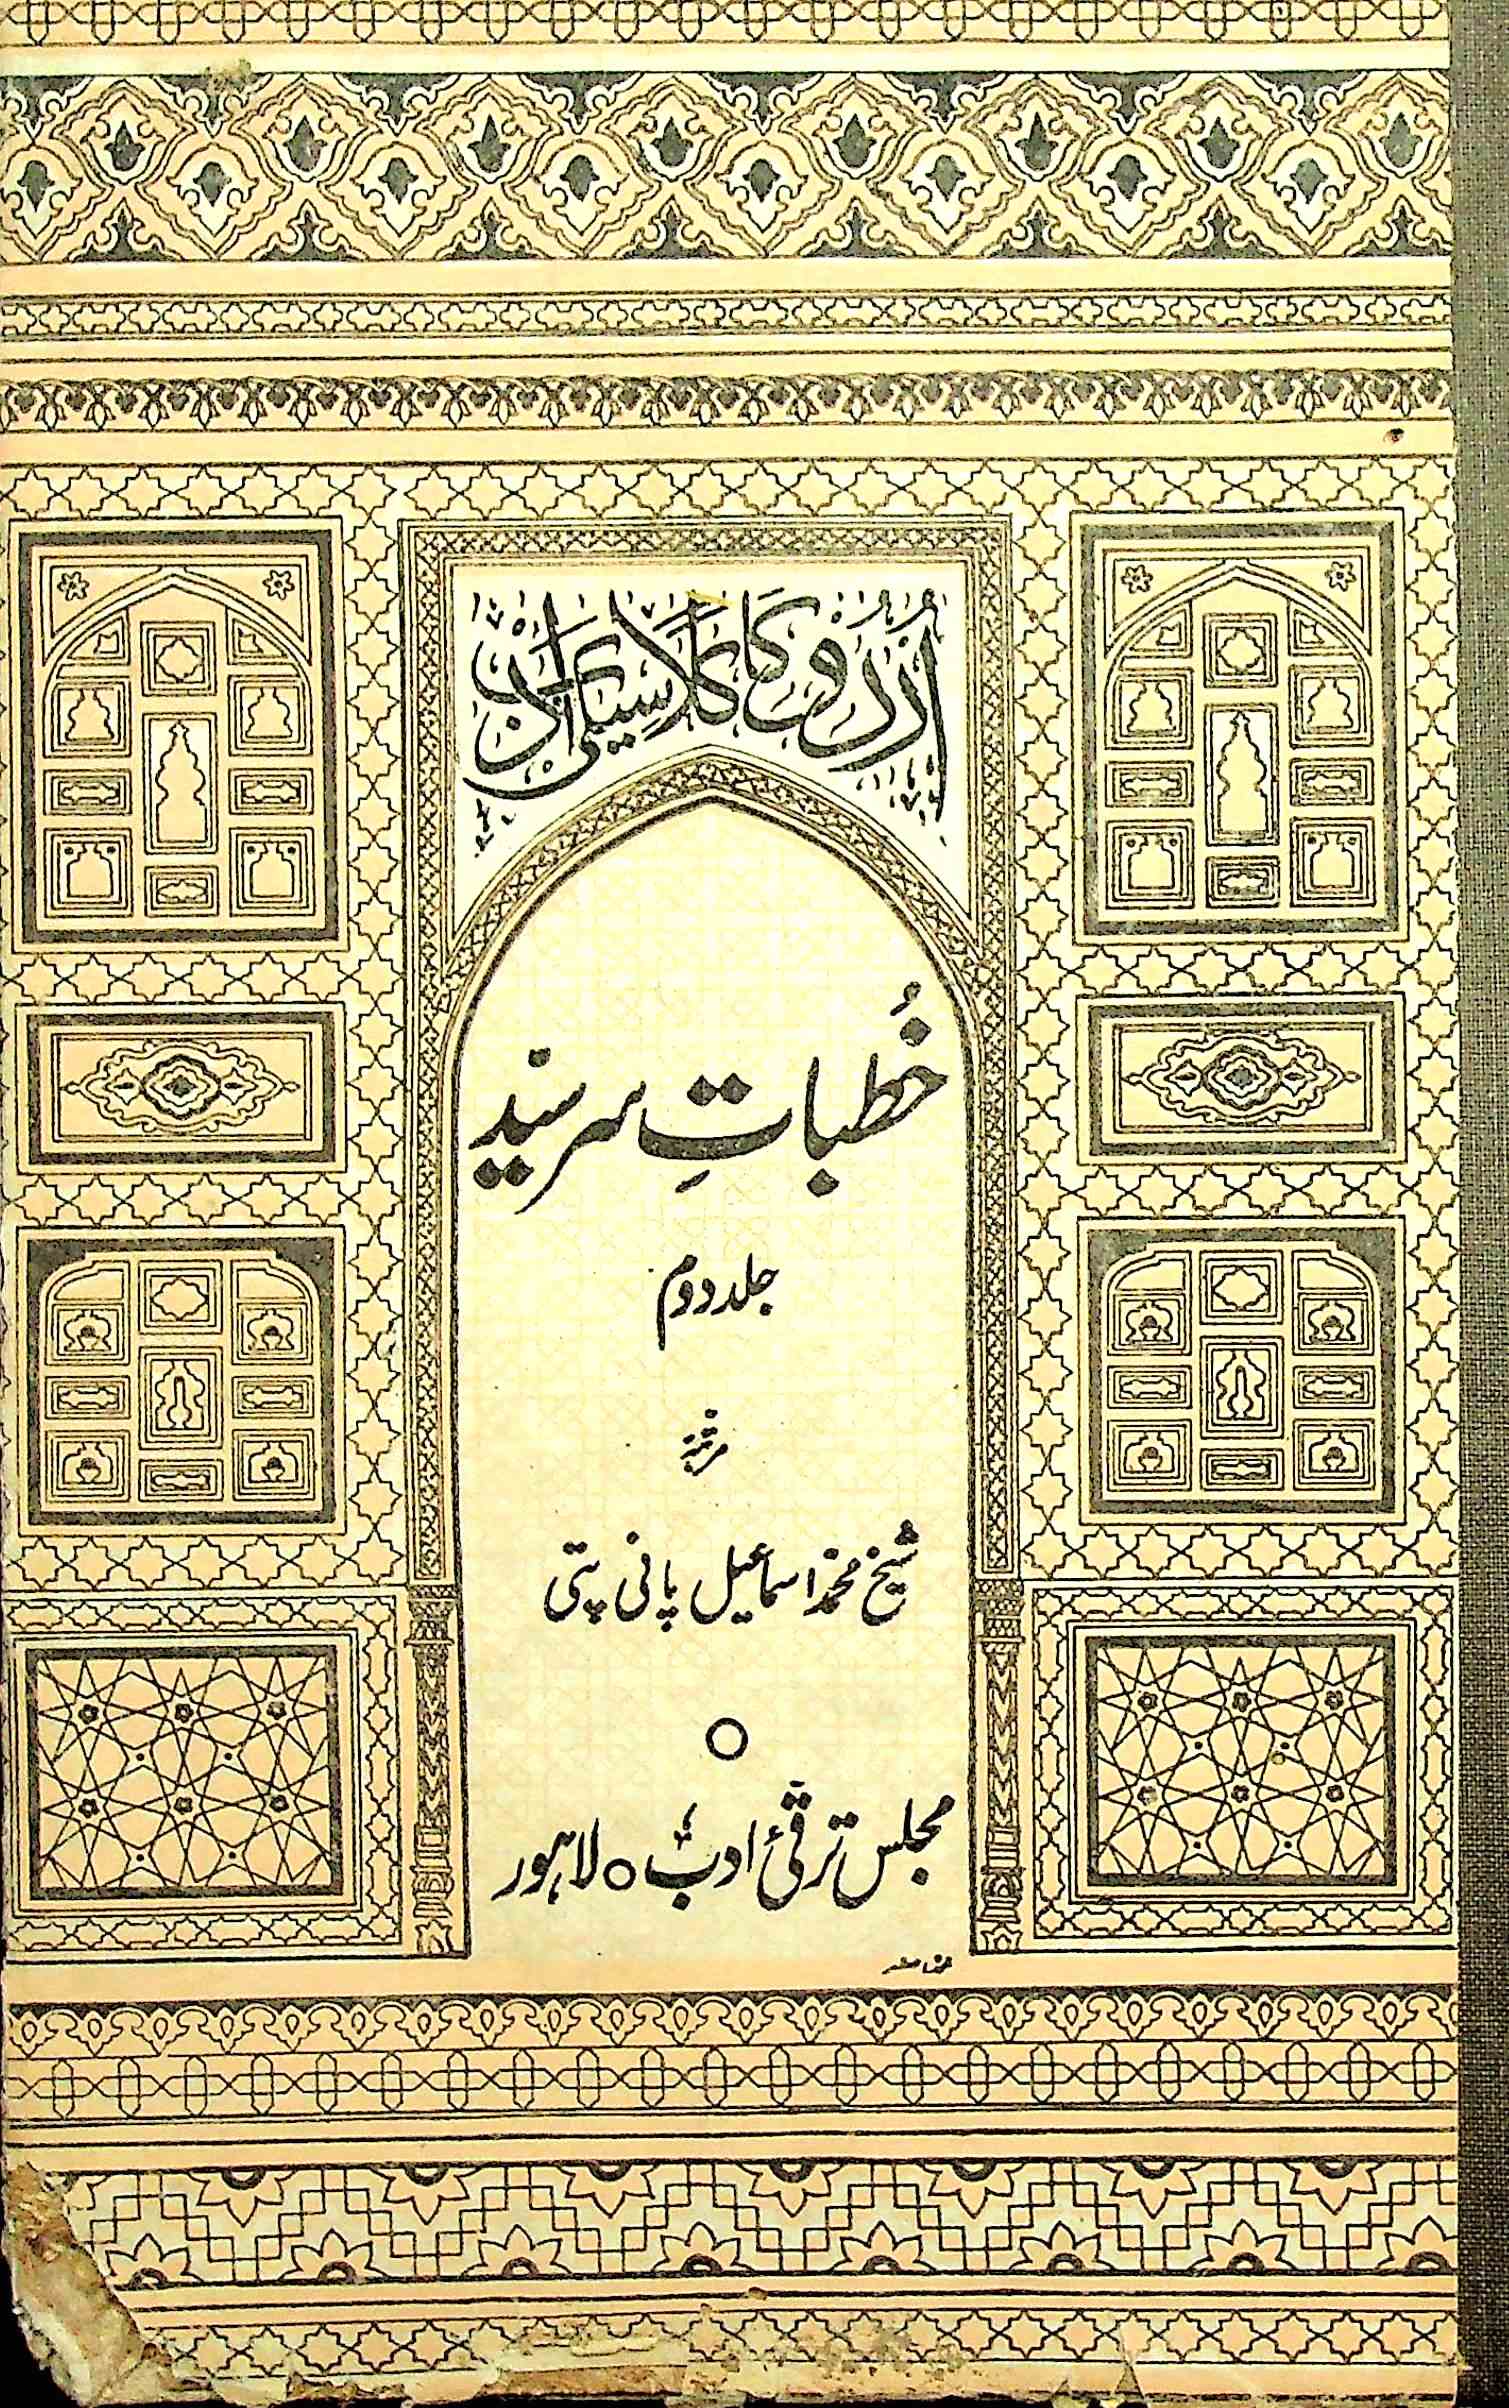 اُردو کا کلاسیکی ادب
خُطباتِ سرسیّد
جلد دوم
مرتّبہ
شیخ محمد اسماعیل پانی پتی
مجلس ترقیٔ ادب ○ لاہور